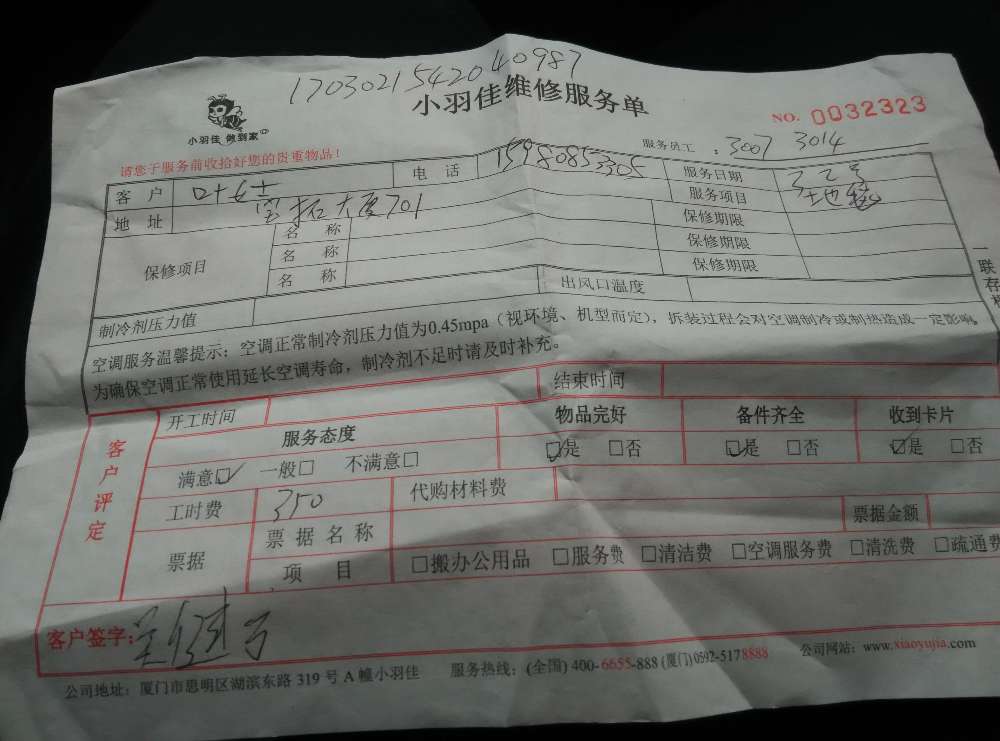 17030215420 40987
小羽佳维修服务单
NO. 0032323
小羽佳 做到家
服务员工 : 3007 3014
请您于服务前收拾好您的贵重物品!
客户 叶女士 电话 15980853305 服务日期
地址 拓大厦701 服务项目
保修项目 名称 保修期限
名称 保修期限
名称 保修期限
一联存根
制冷剂压力值 出风口温度
空调服务温馨提示:空调正常制冷剂压力值为0.45mpa(视环境、机型而定),拆装过程会对空调制冷或制热造成一定影响。
为确保空调正常使用延长空调寿命,制冷剂不足时请及时补充。
客户评定
开工时间 结束时间
服务态度 物品完好 备件齐全 收到卡片
满意☑ 一般□ 不满意□ ☑是 □否 ☑是 □否 ☑是 □否
工时费 350 代购材料费
票据 票据名称 票据金额
项目 □搬办公用品 □服务费 □清洁费 □空调服务费 □清洗费 □疏通费
客户签字:
公司地址:厦门市思明区湖滨东路 319 号 A 幢小羽佳 服务热线:(全国) 400-6655-888 (厦门) 0592-5178888 公司网站:www.xiaoyujia.com